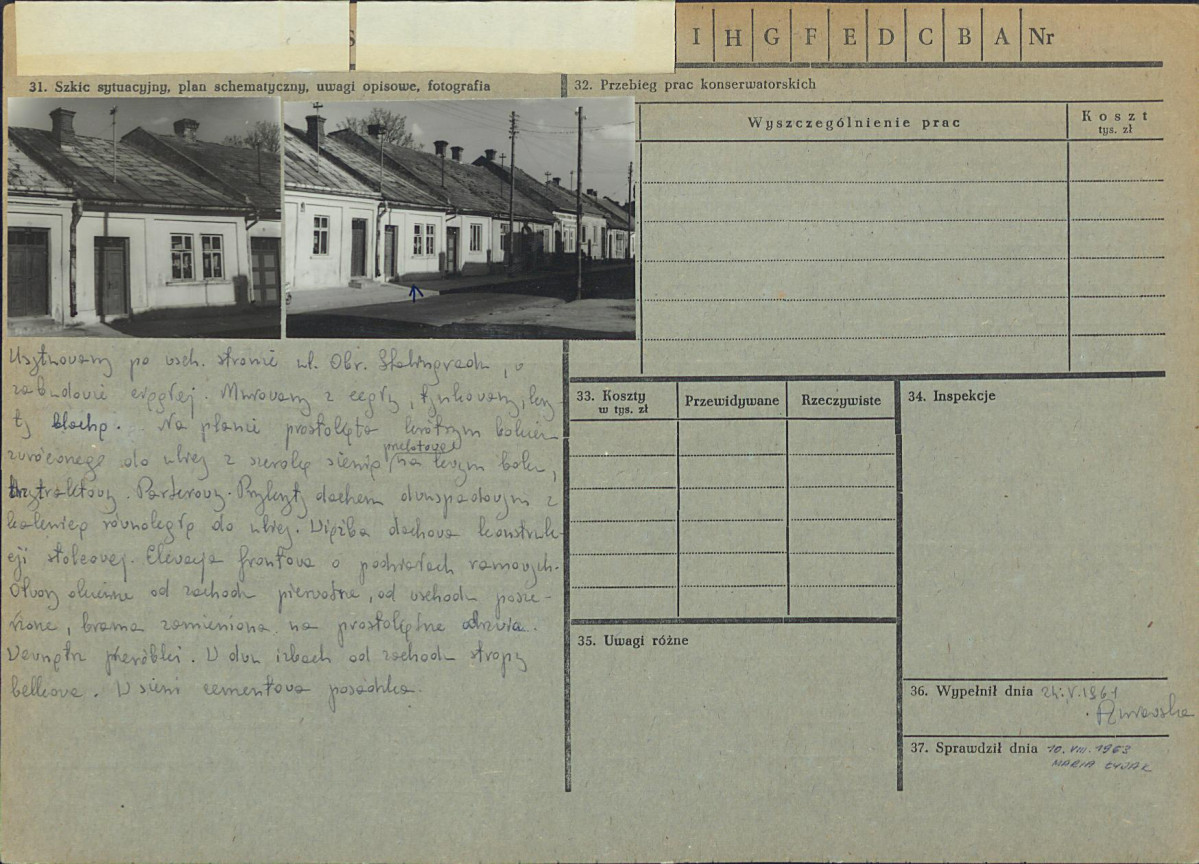 I H G F E D C B A Nr
31. Szkic sytuacyjny, plan schematyczny, uwagi opisowe, fotografia
32. Przebieg prac konserwatorskich
Wyszczególnienie prac
Koszt
tys. zł
Usytuowany po wsch. stronie ul. Obr. Stalingradu, w
zabudowie ciągłej. Murowany z cegły, tynkowany, kry-
ty blachą. Na planie prostokąta krótszym bokiem
zwróconego do ulicy z szeroką sienią przelotową na lewym boku,
trzytraktowy. Parterowy. Przykryty dachem dwuspadowym z
kalenicą równoległą do ulicy. Więźba dachowa konstruk-
cji stolcowej. Elewacja frontowa o podziałach ramowych.
Otwory okienne od zachodu pierwotne, od wschodu posze-
rzone, brama zamieniona na prostokątne drzwia.
Wewnątrz przeróbki. W dwu izbach od zachodu stropy
belkowe. W sieni cementowa posadzka.
33. Koszty
w tys. zł
Przewidywane
Rzeczywiste
34. Inspekcje
35. Uwagi różne
36. Wypełnił dnia 24.V.1961
37. Sprawdził dnia 10.VIII.1963
MARIA